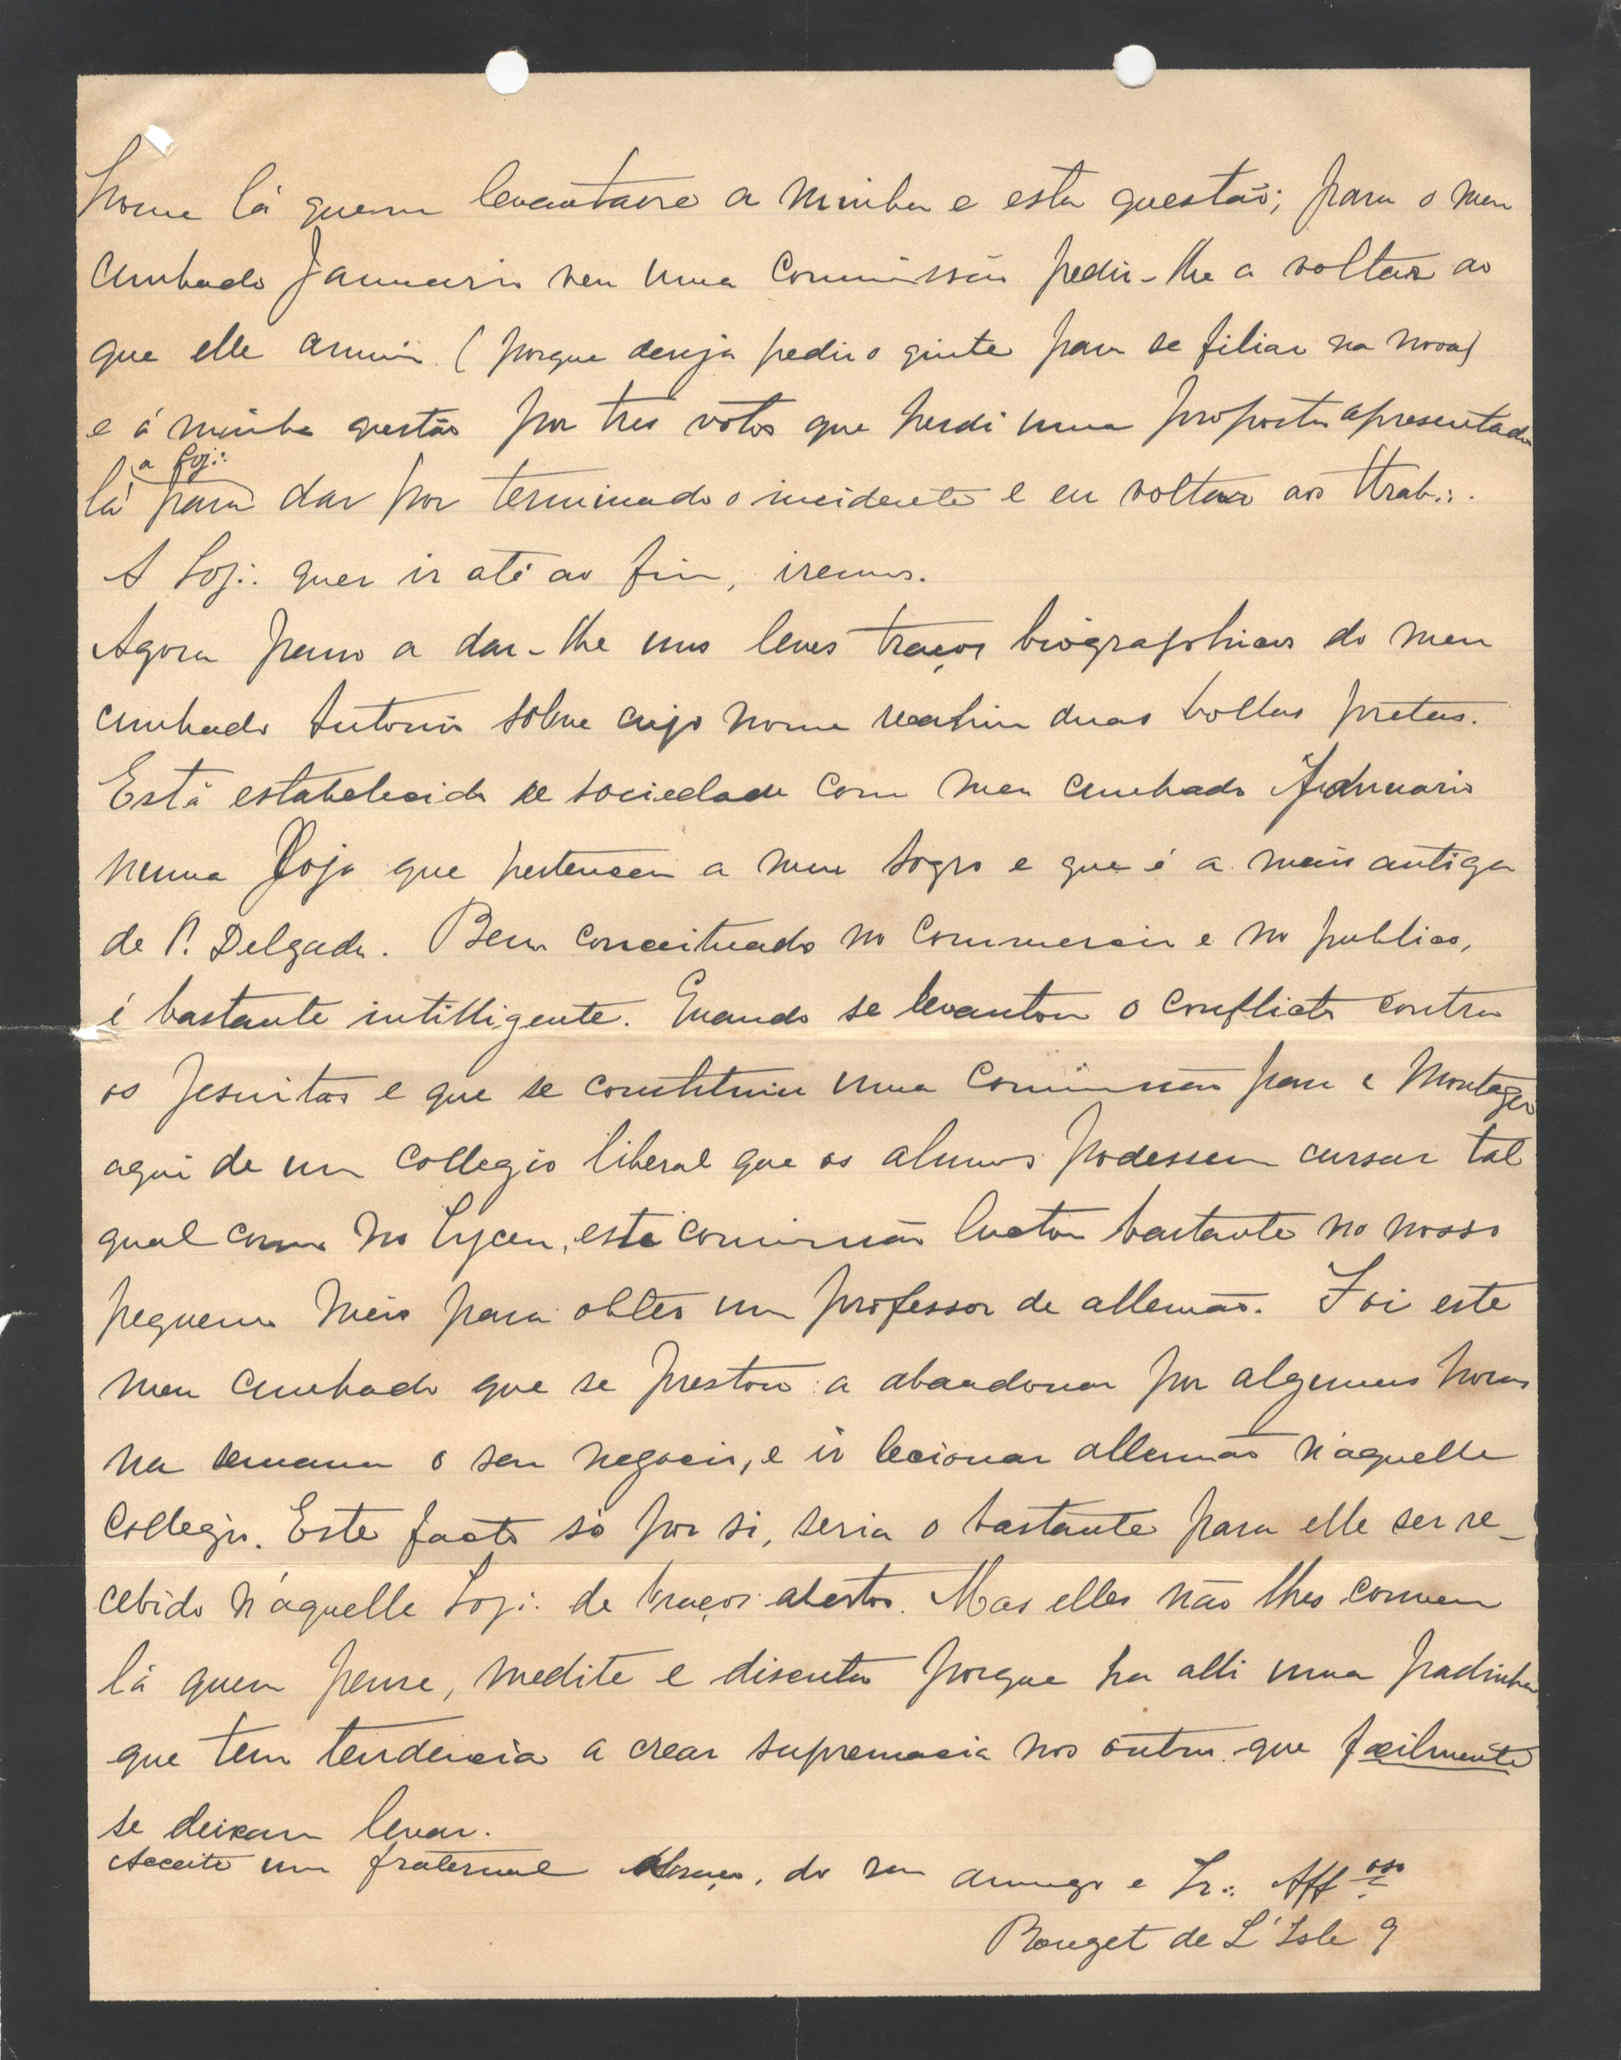 houve lá quem levantasse a minha e esta questão; para o meu
cunhado Januario veu uma Commissão pedir-lhe a voltar ao
que elle annuiu (porque deseja pedir o quite para se filiar na nova)
e á minha questão por tres votos que perdi uma proposta apresentada
a Loj∴
lá para dar por terminado o incidente e eu voltar aos ttrab∴.
A Loj∴ quer ir até ao fim, iremos.
Agora passo a dar-lhe uns leves traços biographicos do meu
cunhado Antonio sobre cujo nome recahiu duas bollas pretas.
Está estabelecido de sociedade com meu cunhado Januario
numa Loja que pertenceu a meu sogro e que é a mais antiga
de P. Delgada. Bem conceituado no Commercio e no publico,
é bastante intilligente. Quando se levantou o conflicto contra
os Jesuitas e que se constituiu uma Commissão para a Montagem
aqui de um collegio liberal que os alumnos podessem cursar tal
qual como no Lyceu, esta commissão luctou bastante no nosso
pequeno meio para obter um professor de allemão. Foi este
meu cunhado que se prestou a abandonar por algumas horas
na semana o seu negocio, e ir lecionar allemão n'aquelle
Collegio. Este facto só por si, seria o bastante para elle ser re-
cebido n'aquella Loj∴ de braços abertos. Mas elles não lhes convem
lá quem pense, medite e discuta porque ha alli uma
que tem tendencia a crear supremacia nos outros que facilmente
se deixam levar.
Acceite um fraternal abraço, do seu amigo e Ir∴ Aff.oso
Rouget de L'Isle 9